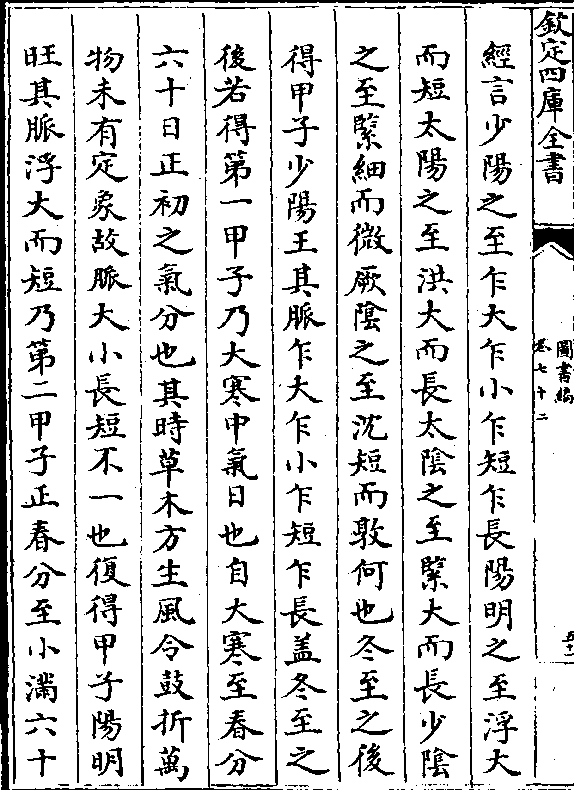 欽定四庫全書
圖書編
卷七十二
五十一
經言少陽之至乍大乍小乍短乍長陽明之至浮大
而短太陽之至洪大而長太陰之至緊大而長少陰
之至緊細而微厥陰之至沈短而敦何也冬至之後
得甲子少陽王其脈乍大乍小乍短乍長盖冬至之
後若得第一甲子乃大寒中氣日也自大寒至春分
六十日正初之氣分也其時草木方生風令鼓折萬
物未有定象故脈大小長短不一也復得甲子陽明
旺其脈浮大而短乃第二甲子正春分至小滿六十